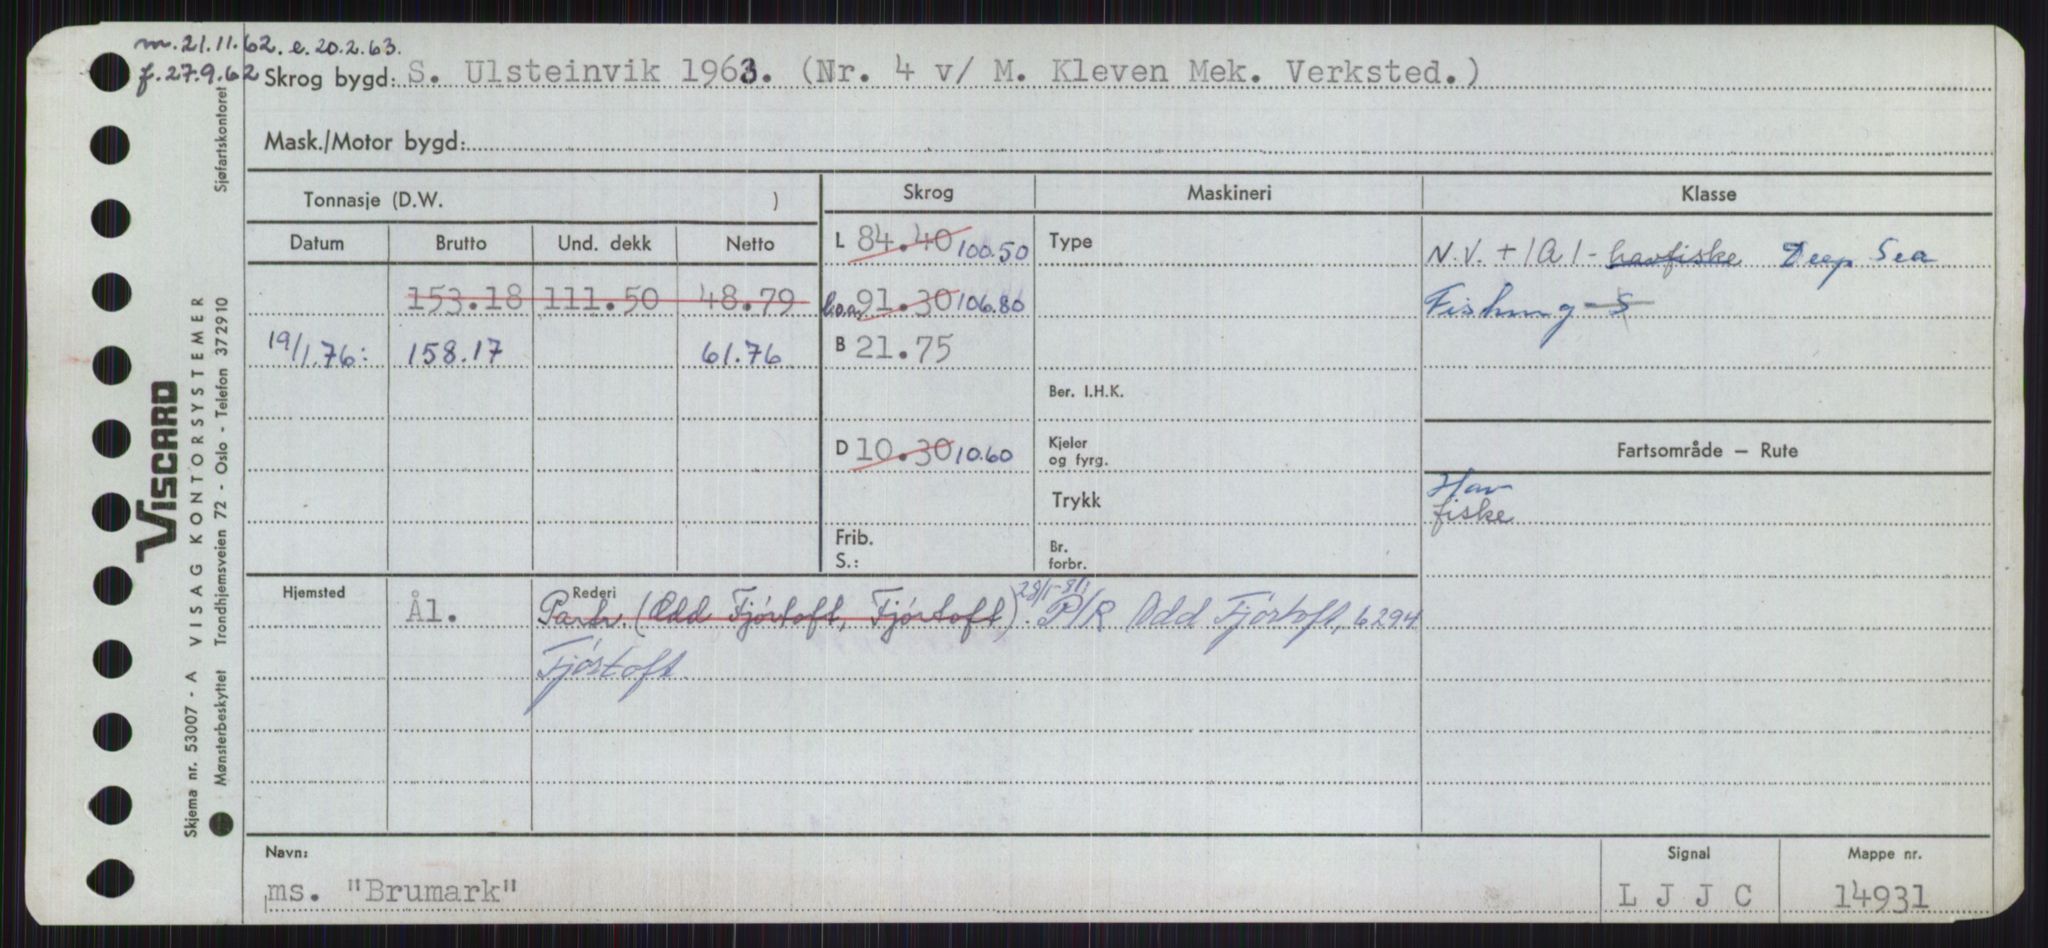 m. 21.11.62. e. 20.2.63.
f. 27.9.62
Skrog bygd: S. Ulsteinvik 1963. (Nr. 4 v/ M. Kleven Mek. Verksted.)
Mask./Motor bygd:
Tonnasje (D.W. )
Skrog
Maskineri
Klasse
Datum Brutto Und. dekk Netto
L 84.40 100.50
Type
N.V. + 1A1 - havfiske Deep Sea
153.18 111.50 48.79
l.o.a. 91.30 106.80
Fishing - S
19/1.76: 158.17 61.76
B 21.75
Ber. I.H.K.
D 10.30 10.60
Kjeler
og fyrg.
Fartsområde — Rute
Hav
fiske
Trykk
Frib.
S.:
Br.
forbr.
Hjemsted Ål.
Rederi
Partr. (Odd Fjörtoft, Fjörtoft). 28/1-81: P/R Odd Fjörtoft, 6294
Fjörtoft.
Navn:
ms. "Brumark"
Signal
L J J C
Mappe nr.
14931
Sjøfartskontoret
VISCARD
VISAG KONTORSYSTEMER
Skjema nr. 53007 - A
Mønsterbeskyttet Trondhjemsveien 72 - Oslo - Telefon 372910